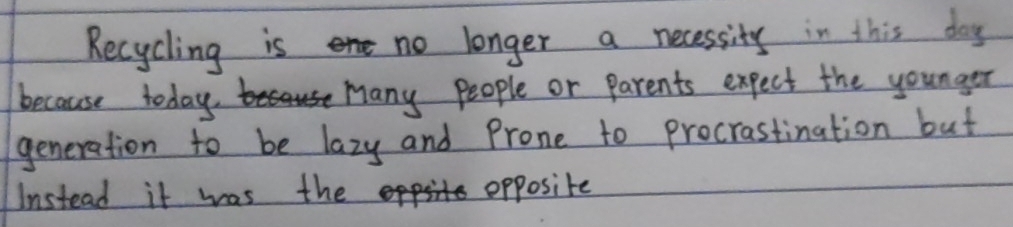 Recycling is one no longer a necessity in this day
because today, because Many people or parents expect the younger
generation to be lazy and Prone to procrastination but
Instead it was the oppsite opposite